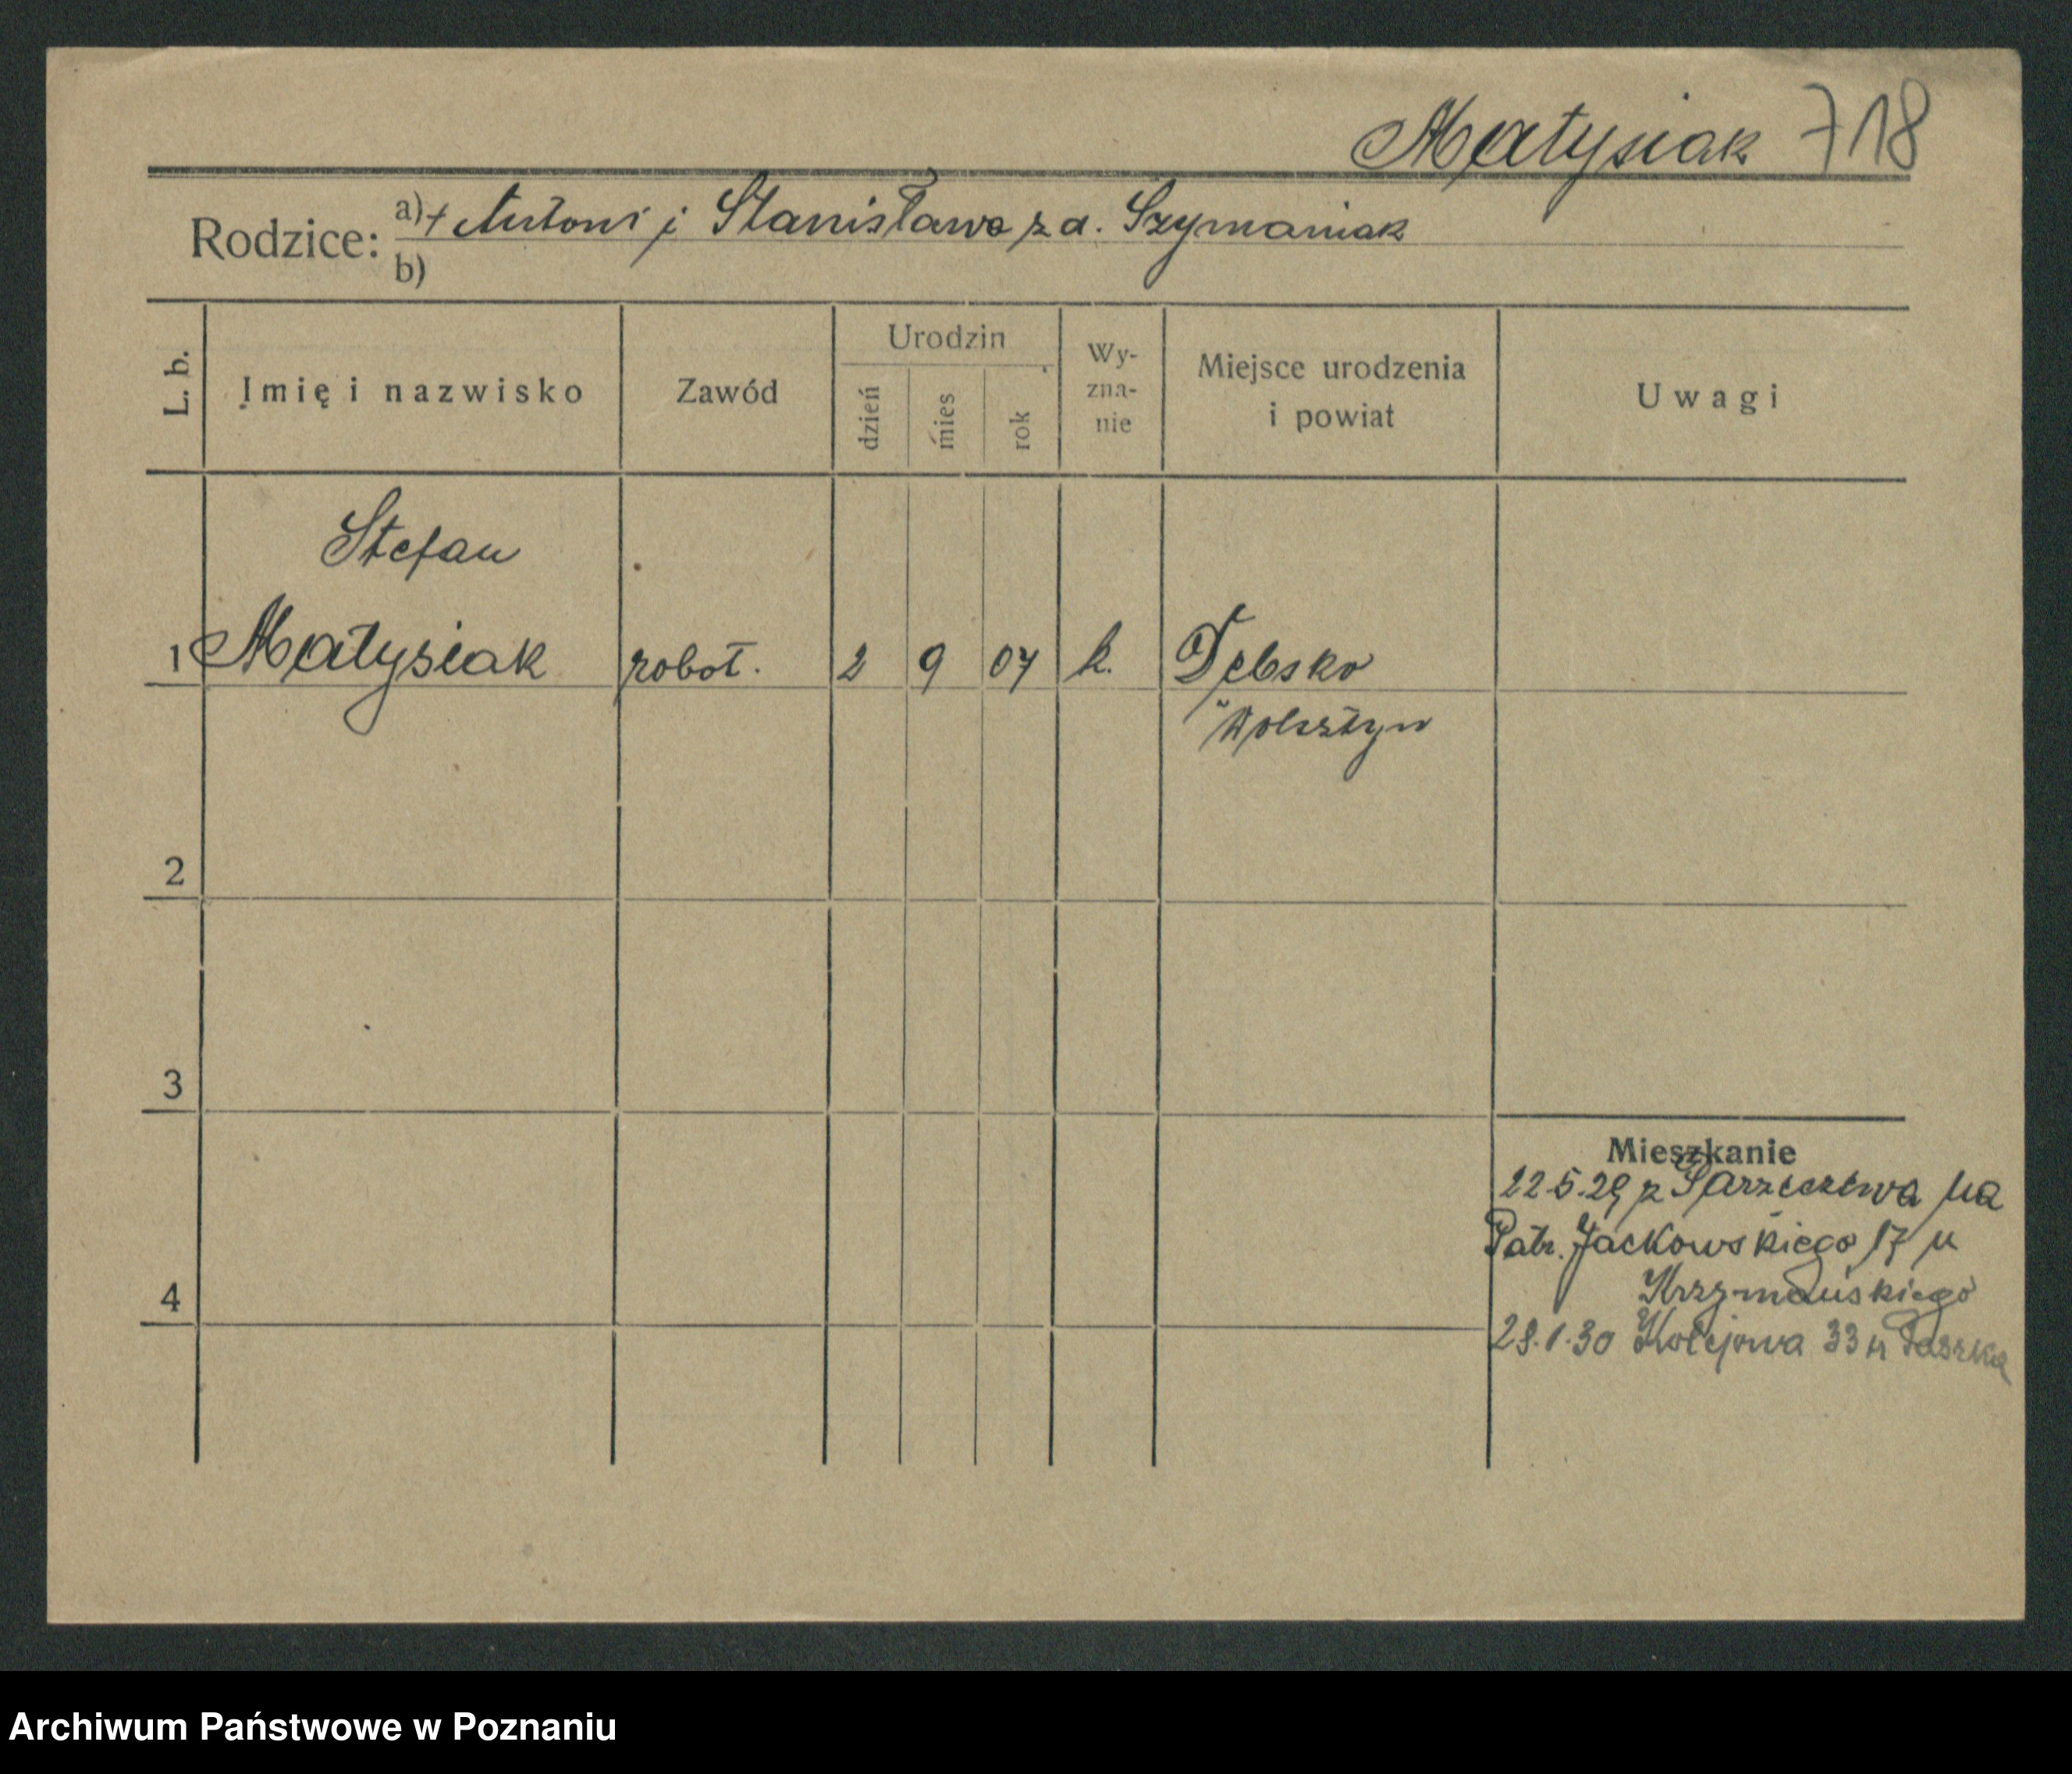 Matysiak 718
Rodzice: a) + Antoni i Stanisława z d. Szymaniak
b)
L. b.
Imię i nazwisko
Zawód
Urodzin
dzień
mies
rok
Wy-
zna-
nie
Miejsce urodzenia
i powiat
Uwagi
Stefan
1 Matysiak robot. 2 9 07 k. Dębsko
Wolsztyn
2
3
Mieszkanie
22.5.29 z Parzęczewa na
Patr. Jackowskiego 17 u
4
Krzymańskiego
28.1.30 Kolejowa 33 u
Archiwum Państwowe w Poznaniu